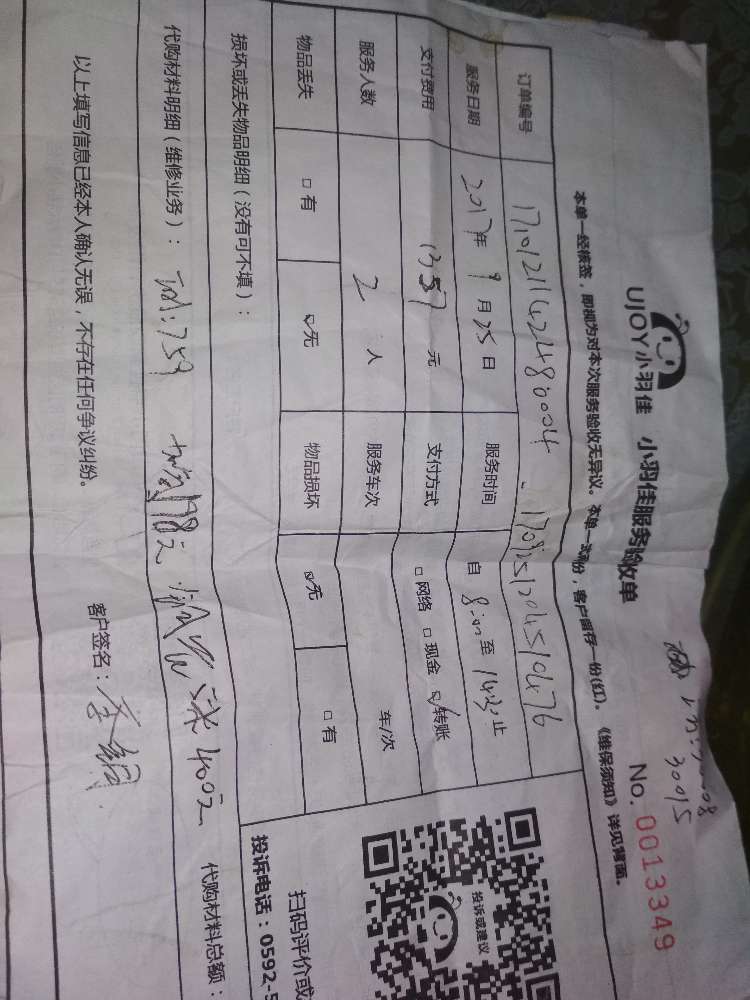 30015
UJOY小羽佳 小羽佳服务验收单
No. 0013349
本单一经核签，即视为对本次服务验收无异议。本单一式两份，客户留存一份(红)。《维保须知》详见背面。
订单编号
服务日期 2017年9月25日 服务时间 自 8:00 至 14:30 止
支付费用 1357元 支付方式 □网络 □现金 ☑转账
服务人数 2人 服务车次 车/次
物品丢失 □有 ☑无 物品损坏 ☑无 □有
损坏或丢失物品明细（没有可不填）：
代购材料明细（维修业务）： 759 400元 代购材料总额：
以上填写信息已经本人确认无误，不存在任何争议纠纷。
客户签名：
投诉或建议
扫码评价或
投诉电话：0592-5